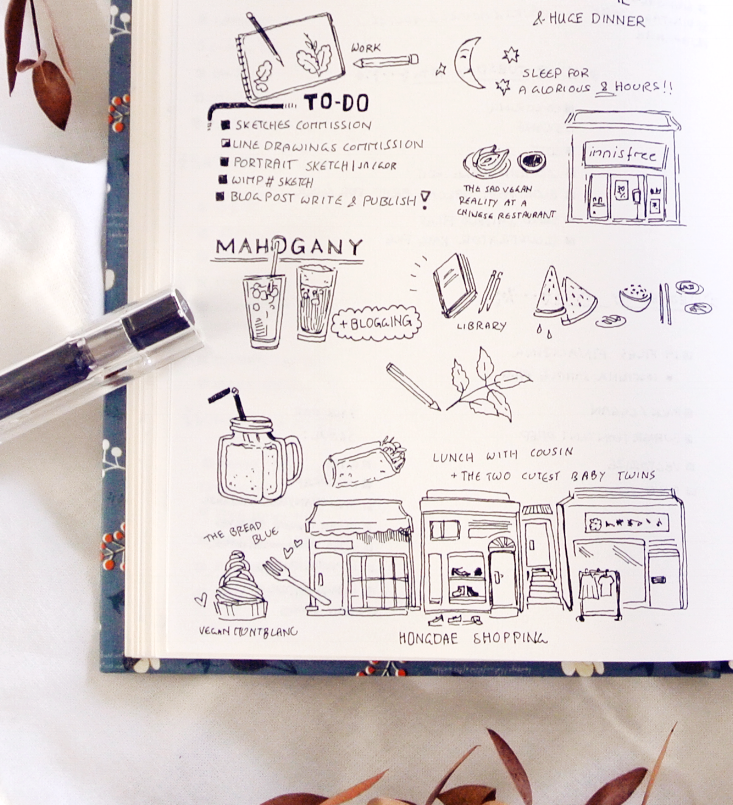 & HUGE DINNER
WORK
SLEEP FOR
A GLORIOUS 8 HOURS!!
TO-DO
SKETCHES COMMISSION
LINE DRAWINGS COMMISSION
PORTRAIT SKETCH
WIMP # SKETCH
BLOGPOST WRITE & PUBLISH!
innisfree
THE SAD VEGAN
REALITY AT A
CHINESE RESTAURANT
MAHOGANY
+ BLOGGING
LIBRARY
LUNCH WITH COUSIN
+ THE TWO CUTEST BABY TWINS
THE BREAD
BLUE
VEGAN MONTBLANC
HONGDAE SHOPPING